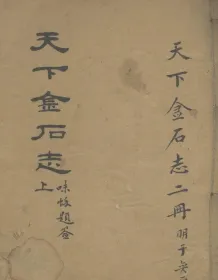 天下金石志二冊 明于奕
天下金石志
上
題签